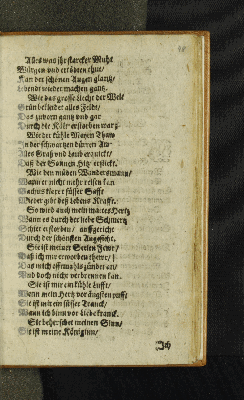 Alles was jhr starcker Muht
Würgen vnd ertödten thut/
Kan der schönen Augen glantz/
Lebendt wieder machen gantz.
Wie das grosse Liecht der Welt
Grün bekleidet alles Feldt/
Das zuvorn gantz vnd gar
Durch die Kält erstorben war:
Wie der kühle Mayen Thaw
In der schwartzen dürren Aw
Alles Graß vnd Laub erquickt/
Daß der Sonnen Hitz erstickt.
Wie den müden Wandersmann/
Wann er nicht mehr reisen kan
Bachus klarer süsser Safft
Wieder gibt deß Lebens Krafft.
So wird auch mein mattes Hertz
Wann es durch der Liebe Schmertz
Schier erstorben/ auffgericht
Durch der schönsten Angesicht.
Sie ist meiner Seelen Fewr/
Daß ich mir erworben thewr/
Das mich offtmals zündet an/
Vnd doch nicht verbrennen kan.
Sie ist mir ein kühle Lufft/
Wenn mein Hertz vor ängsten rufft/
Sie ist mir ein süsser Tranck/
Wann ich bin vor Liebe kranck.
Sie beherrschet meinen Sinn/
Sie ist meine Königinn/
Ich